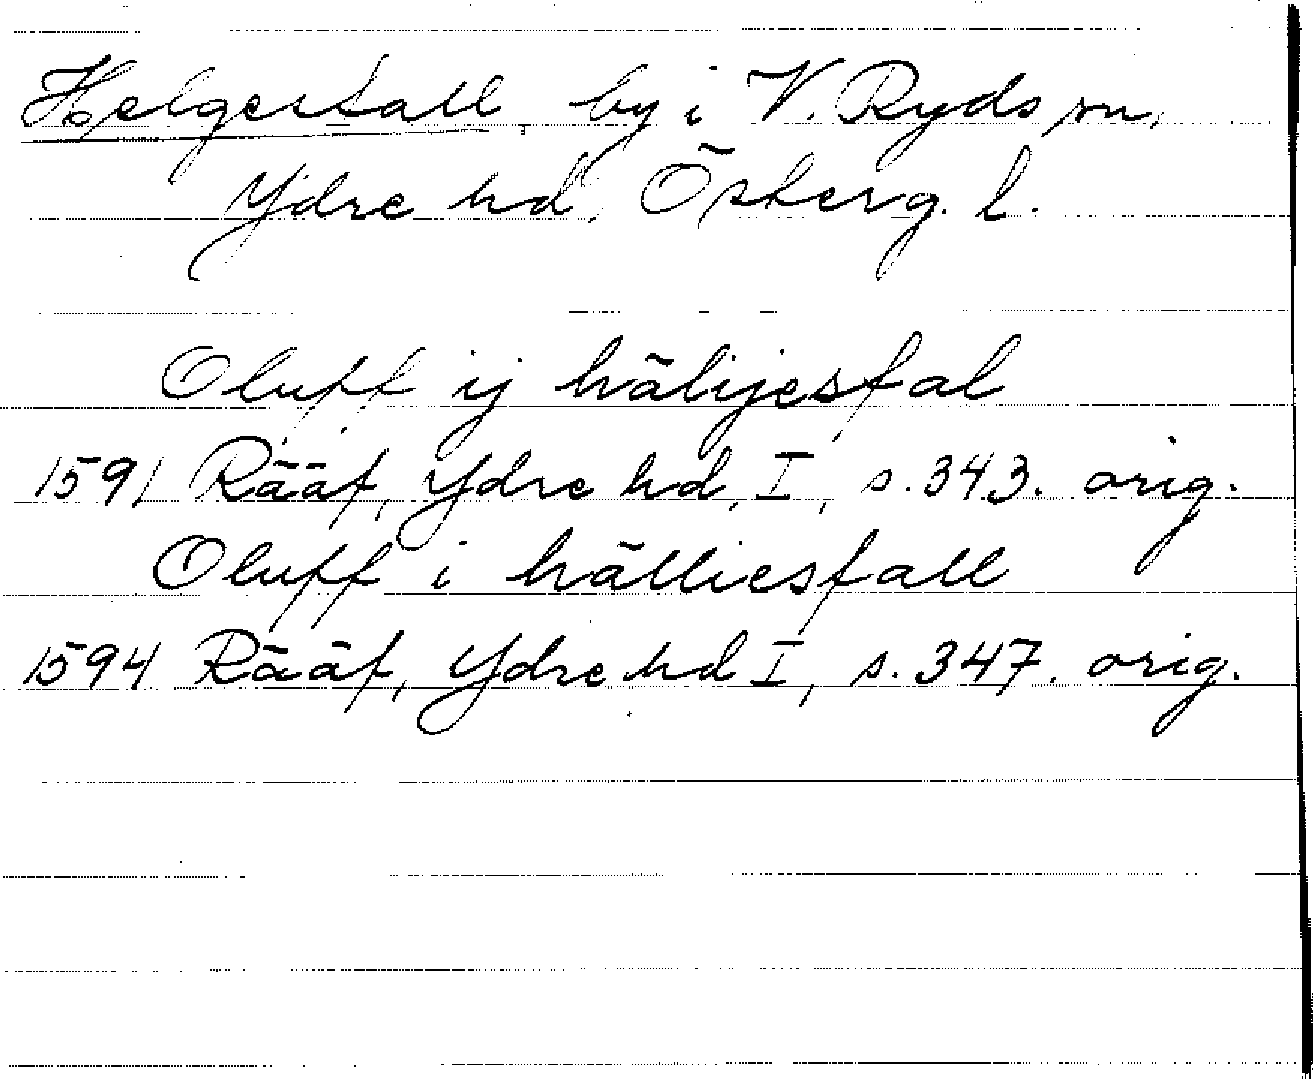 Helgesfall, by i V. Ryds sn,
Ydre hd, Österg. l.
Oluff ij hälijesfal
1591 Rääf, Ydre hd, I, s. 343. orig.
Oluff i hälliesfall
1594 Rääf, Ydre hd I, s. 347. orig.